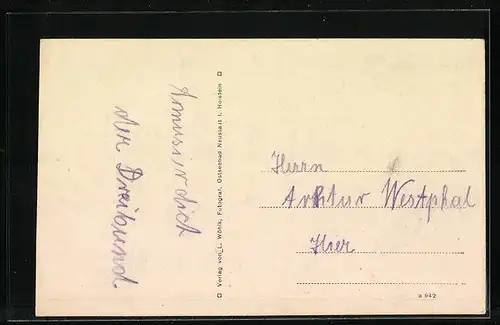 Amusir dich
der Dreibund
Verlag von L. Wöhlk, Fotograf, Ostseebad Neustadt i. Holstein
Herrn
Arhtur Westphal
Hier
a 942